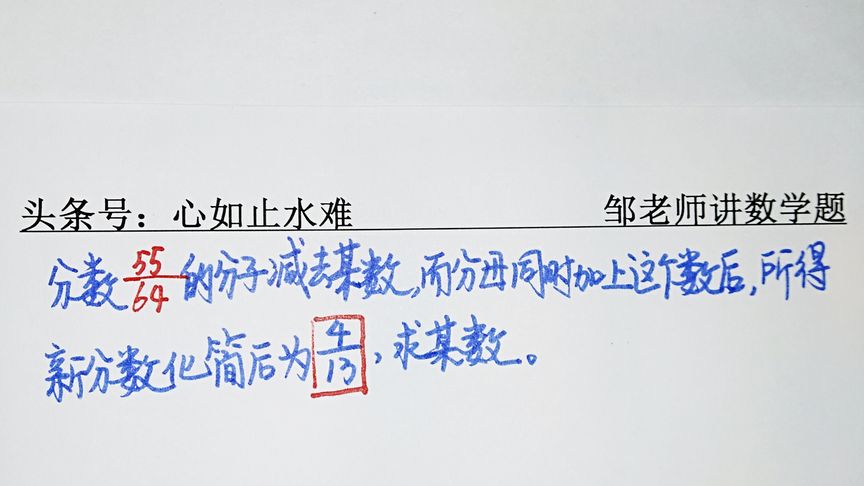 头条号：心如止水难 邹老师讲数学题
分数55/64的分子减去某数,而分母同时加上这个数后,所得
新分数化简后为4/13,求某数。